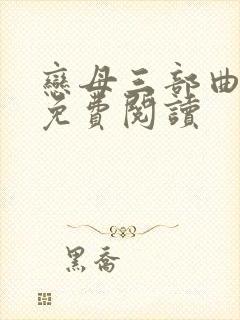 戀母三部曲
免費閱讀
黑喬